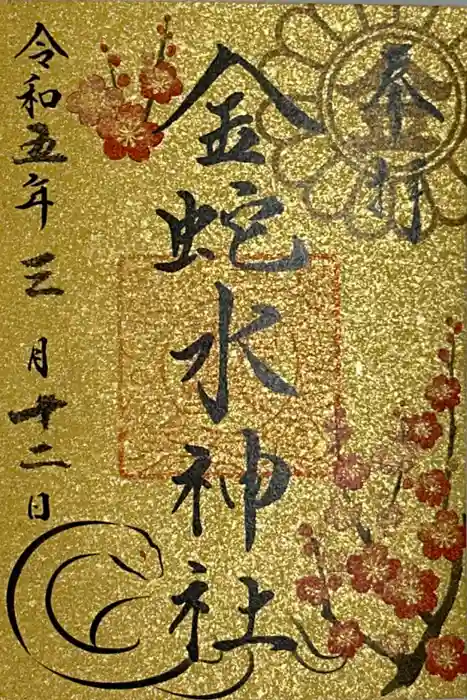 奉拝
金蛇水神社
令和五年三月十二日